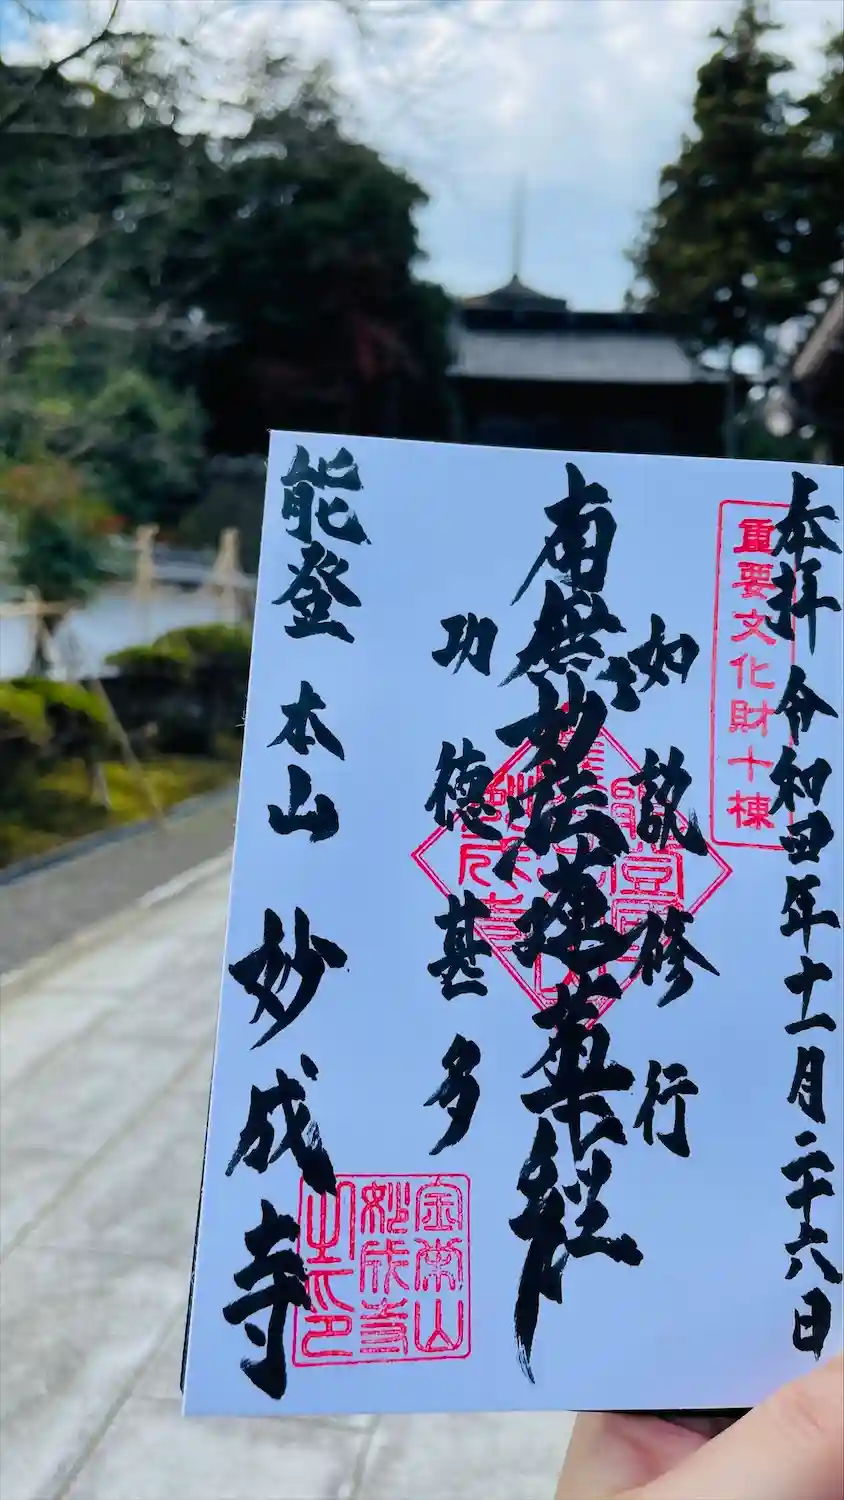 奉拝 令和四年十一月二十六日
重要文化財十棟
如説修行
南無妙法蓮華経
功徳甚多
能登 本山 妙成寺
金栄山
妙成寺
之印